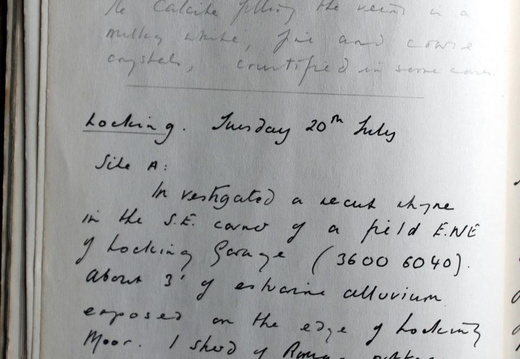 The Calcite filling the veins is a
milky white, fine and coarse
crystals, crustified in some cases.
Locking. Tuesday 20th July
Site A:
Investigated a recut rhyne
in the S.E. corner of a field E.NE
of Locking Garage (3600 6040).
About 3' of estuarine alluvium
exposed on the edge of Locking
Moor. 1 sherd of Roman